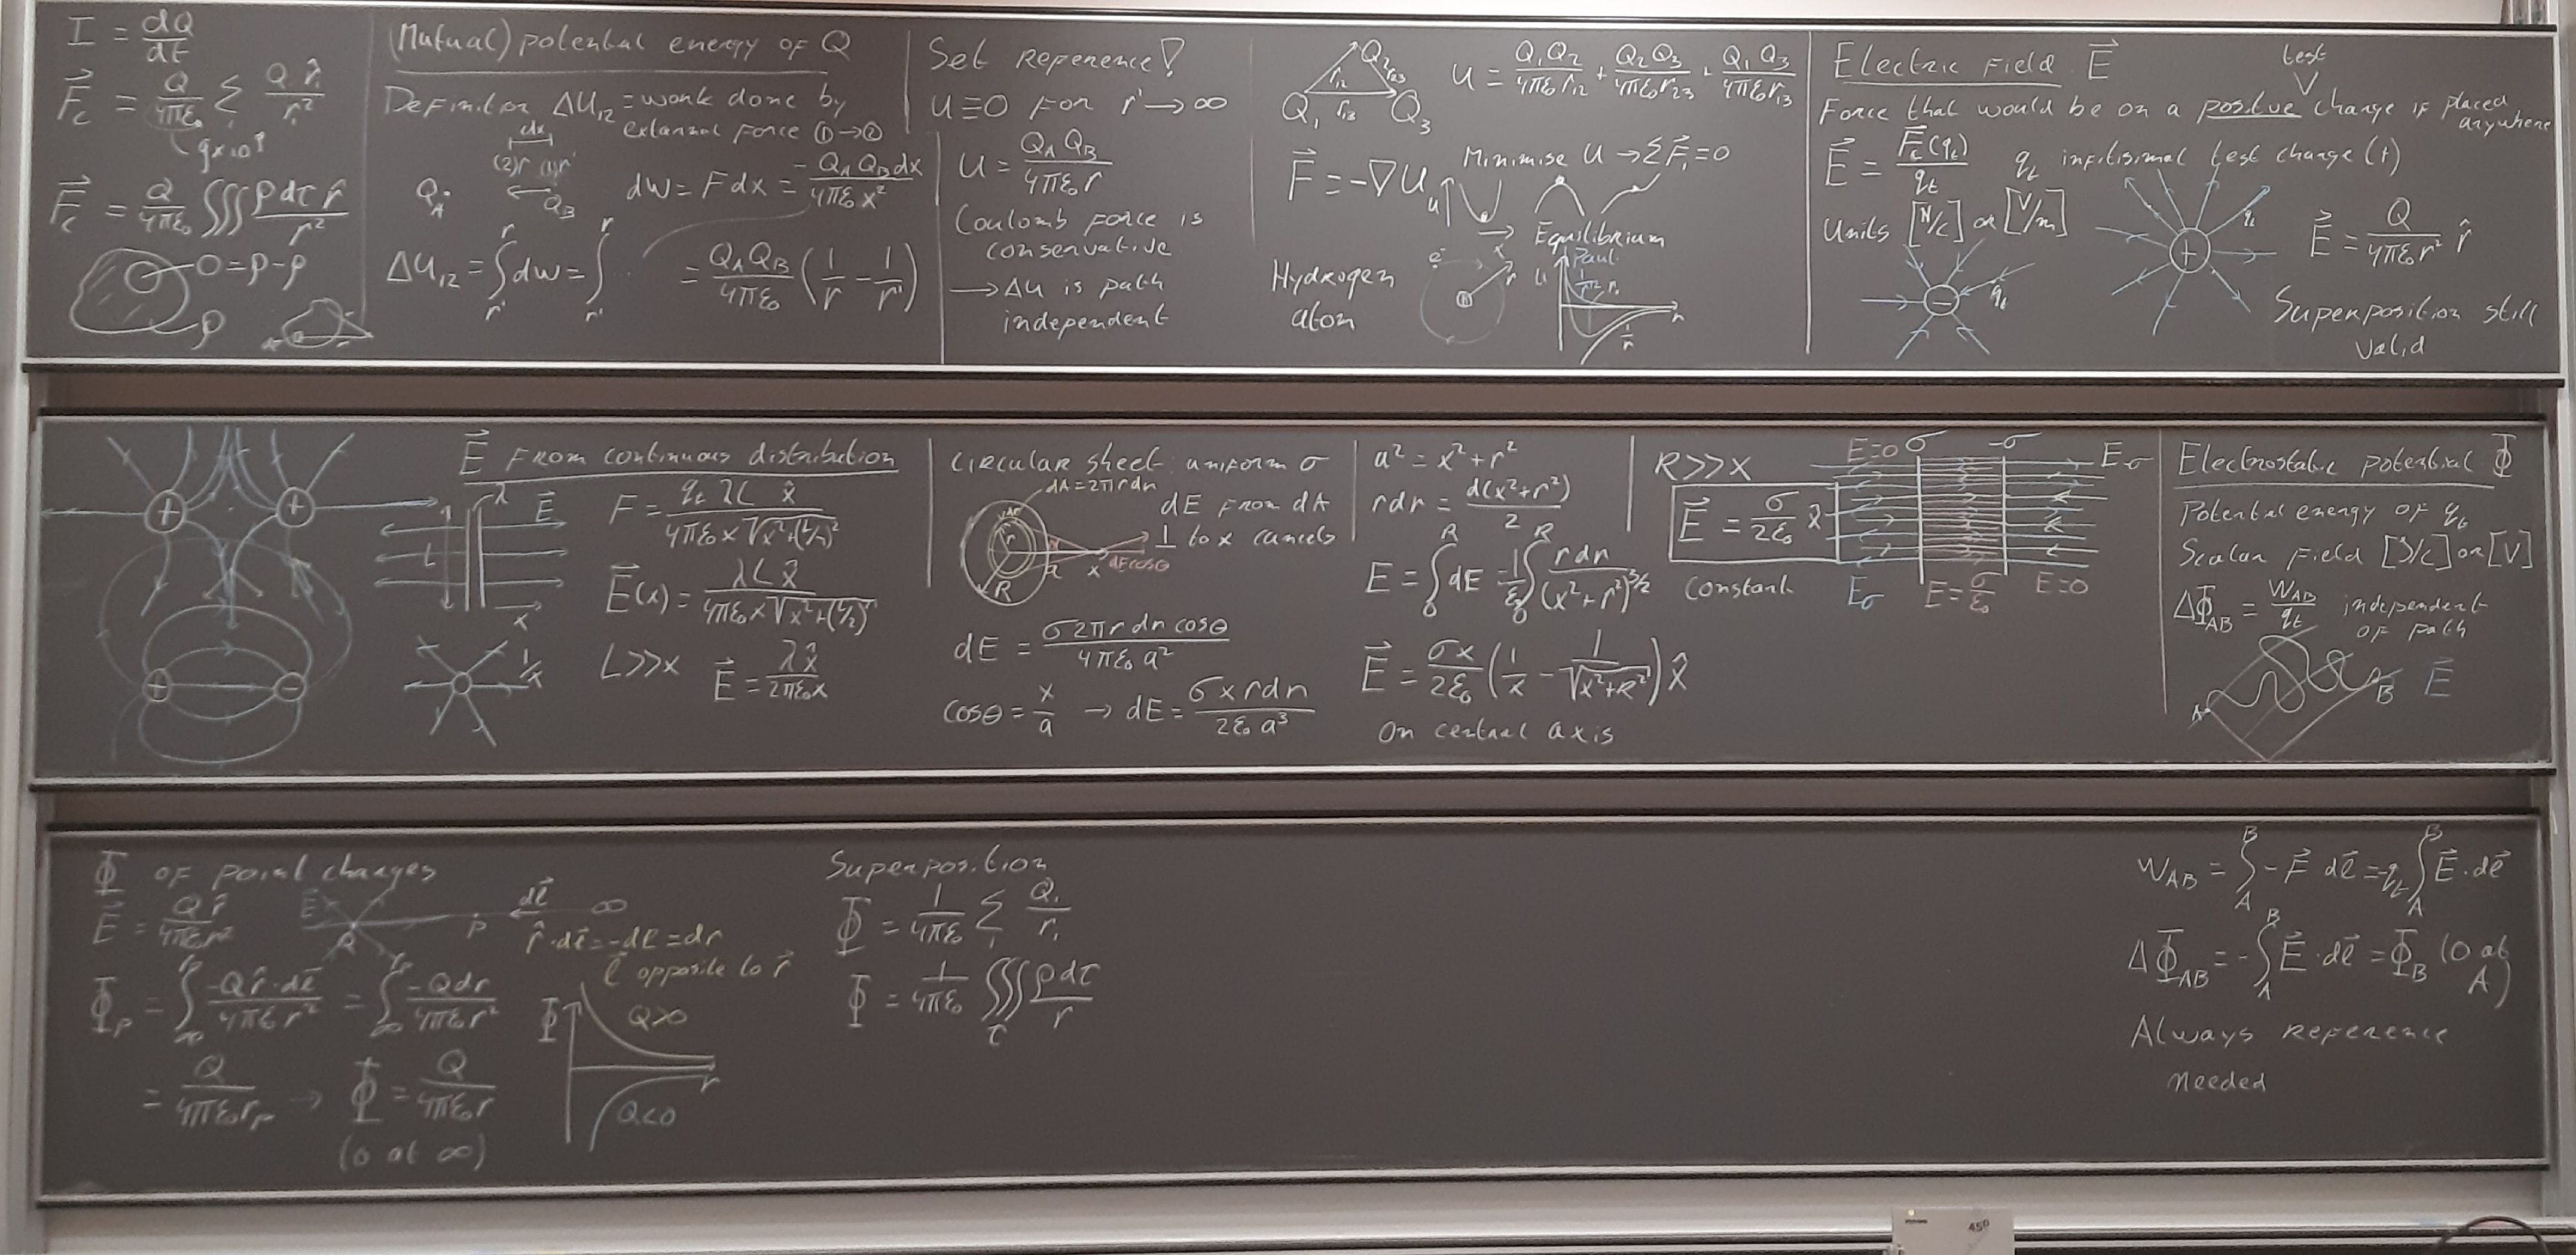 I = dQ/dt
F⃗_c = Q/4πε₀ Σ_i Q_i r̂_i/r_i²
9x10⁹
F⃗_c = Q/4πε₀ ∭ ρdτ r̂/r²
O=ρ-ρ
ρ
(Mutual) potential energy of Q
Definition ΔU₁₂ = work done by
external force ①→②
dx
(2)r (1)r'
Q_A Q_B
dw = Fdx = -Q_A Q_B dx/4πε₀ x²
ΔU₁₂ = ∫_{r'}^{r} dw = ∫_{r'}^{r} ... = Q_A Q_B/4πε₀ (1/r - 1/r')
Set reference!
U≡0 for r'→∞
U = Q_A Q_B/4πε₀ r
Coulomb force is
conservative
→ΔU is path
independent
Q₁ Q₂ Q₃ r₁₂ r₂₃ r₁₃
U = Q₁Q₂/4πε₀r₁₂ + Q₂Q₃/4πε₀r₂₃ + Q₁Q₃/4πε₀r₁₃
F⃗ = -∇U
Minimise U → ΣF⃗_i = 0
U x
Equilibrium
Hydrogen
atom
e⁻ r
U Pauli r₀ r
1/r
Electric Field E⃗
test
Force that would be on a positive charge if placed
anywhere
E⃗ = F⃗_c(q_t)/q_t q_t infitisimal test charge (+)
Units [N/C] or [V/m]
- q_t
+ q_t
E⃗ = Q/4πε₀r² r̂
Superposition still
valid
+ +
+ -
E⃗ from continuous distribution
λ E⃗
L x
F = q_t λL x̂/4πε₀x√(x²+(L/2)²)
E⃗(x) = λL x̂/4πε₀x√(x²+(L/2)²)
1/x
L>>x E⃗ = λx̂/2πε₀x
Circular sheet: uniform σ
dA=2πrdr
dE from dA
⊥ to x cancels
r R a x dEcosθ
dE = σ2πrdr cosθ/4πε₀a²
cosθ = x/a → dE = σxrdr/2ε₀a³
a² = x²+r²
rdr = d(x²+r²)/2
E = ∫_0^R dE = 1/ε₀ ∫_0^R rdr/(x²+r²)^{3/2}
E⃗ = σx/2ε₀ (1/x - 1/√(x²+R²)) x̂
On central axis
R>>x
E⃗ = σ/2ε₀ x̂
Constant
E=0 σ -σ E-σ
Eσ E=σ/ε₀ E=0
Electrostatic potential Φ
Potential energy of q_t
Scalar field [J/C] or [V]
ΔΦ_AB = W_AB/q_t independent
of path
A B E⃗
Φ of point charges
E⃗ = Q r̂/4πε₀r²
E⃗ Q P dℓ⃗ ∞
r̂·dℓ⃗ = -dℓ = dr
ℓ⃗ opposite to r⃗
Φ_P = ∫_∞^{r_P} -Q r̂·dℓ⃗/4πε r² = ∫_∞^{r_P} -Qdr/4πε r²
= Q/4πε₀r_P → Φ = Q/4πε₀r
(0 at ∞)
Φ Q>0
r
Q<0
Superposition
Φ = 1/4πε₀ Σ_i Q_i/r_i
Φ = 1/4πε₀ ∭_τ ρdτ/r
W_AB = ∫_A^B -F⃗ dℓ⃗ = -q_t ∫_A^B E⃗·dℓ⃗
ΔΦ_AB = -∫_A^B E⃗·dℓ⃗ = Φ_B (0 at
A)
Always reference
needed
450